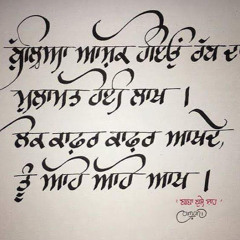 ਬੁੱਲ੍ਹਿਆ ਆਸ਼ਕ ਹੋਇਉਂ ਰੱਬ ਦਾ
ਮੁਲਾਮਤ ਹੋਈ ਲਾਖ ।
ਲੋਕ ਕਾਫ਼ਰ ਕਾਫ਼ਰ ਆਖਦੇ,
ਤੂੰ ਆਹੋ ਆਹੋ ਆਖ ।
' ਬਾਬਾ ਬੁੱਲ੍ਹੇ ਸ਼ਾਹ '